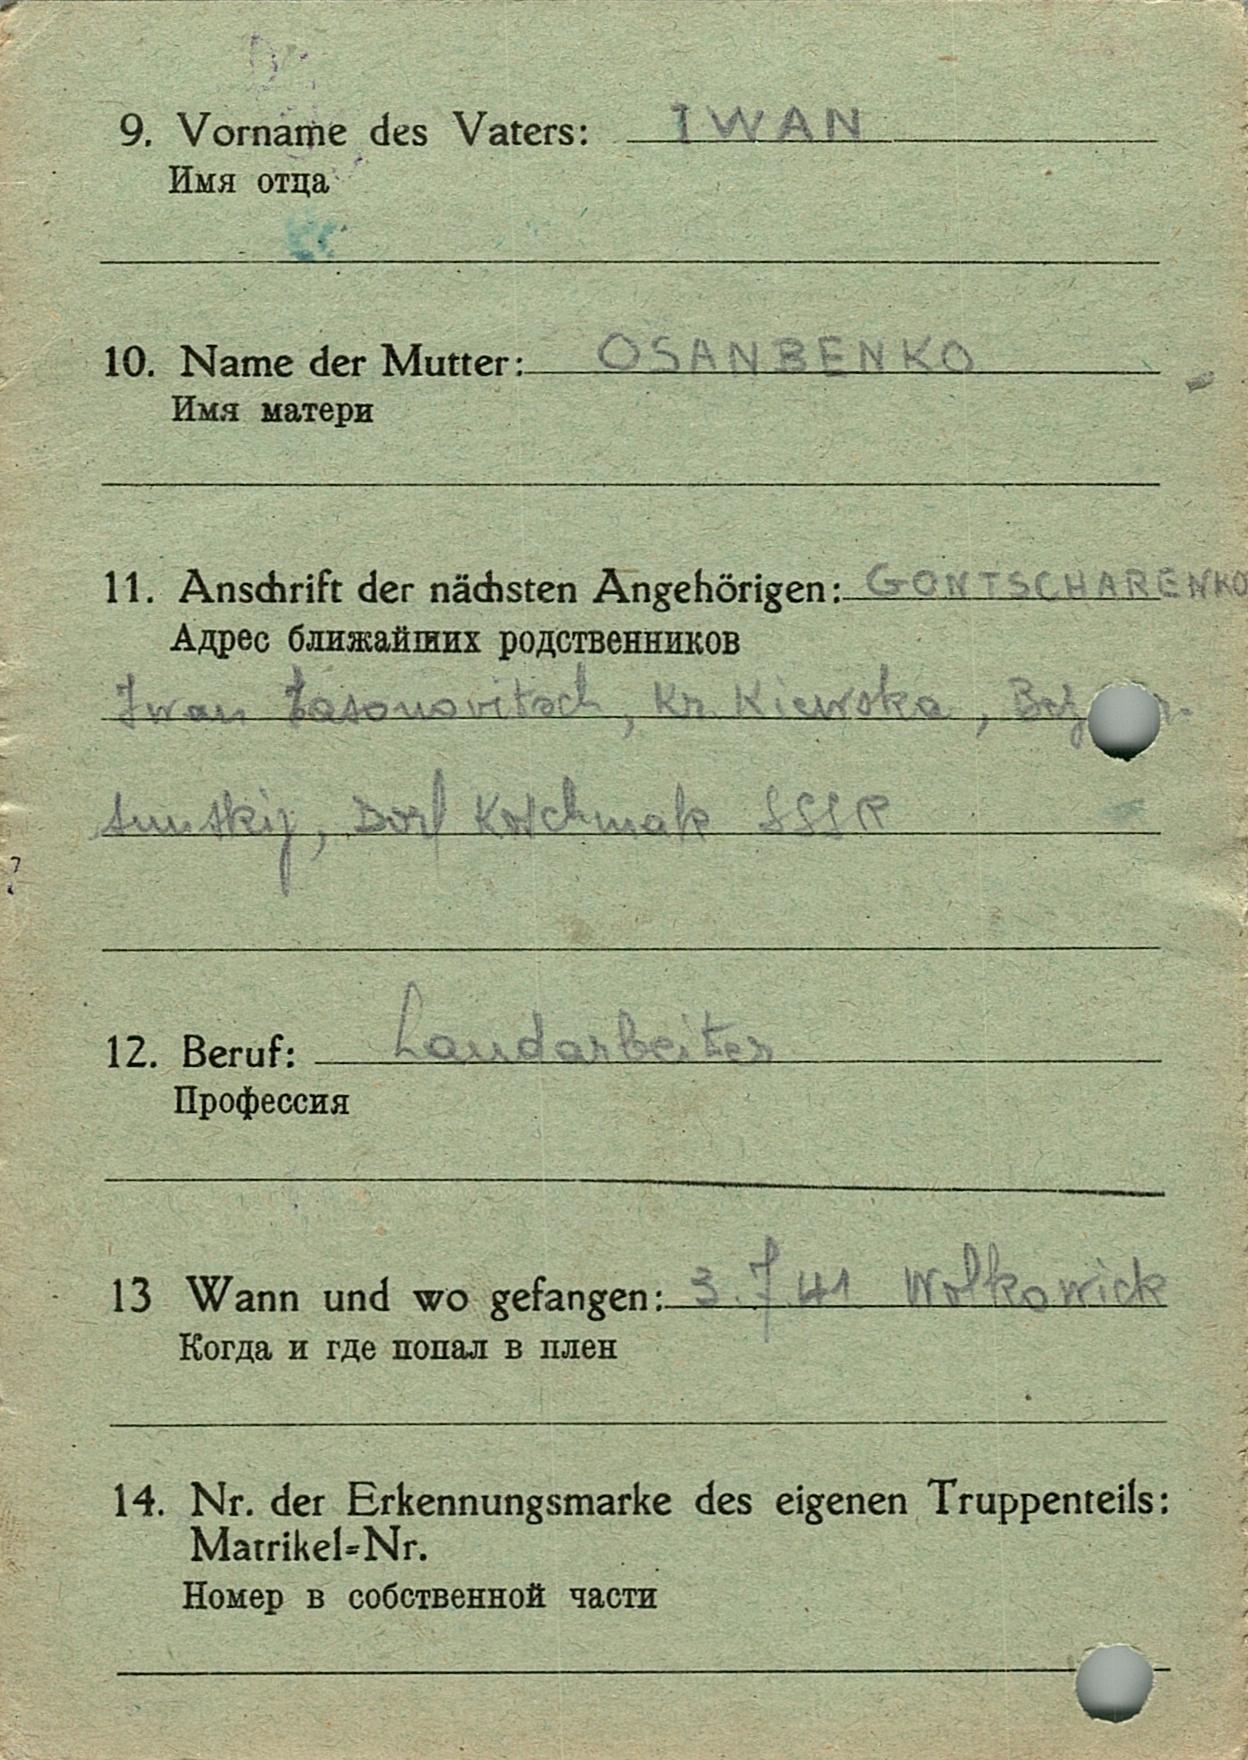 9. Vorname des Vaters: IWAN
Имя отца
10. Name der Mutter: OSANBENKO
Имя матери
11. Anschrift der nächsten Angehörigen: GONTSCHARENKO
Адрес ближайших родственников
Iwan Kr. Kiewska,
Dorf SSSR
12. Beruf: Landarbeiter
Профессия
13 Wann und wo gefangen: 3.7.41 Wolkowick
Когда и где попал в плен
14. Nr. der Erkennungsmarke des eigenen Truppenteils:
Matrikel=Nr.
Номер в собственной части